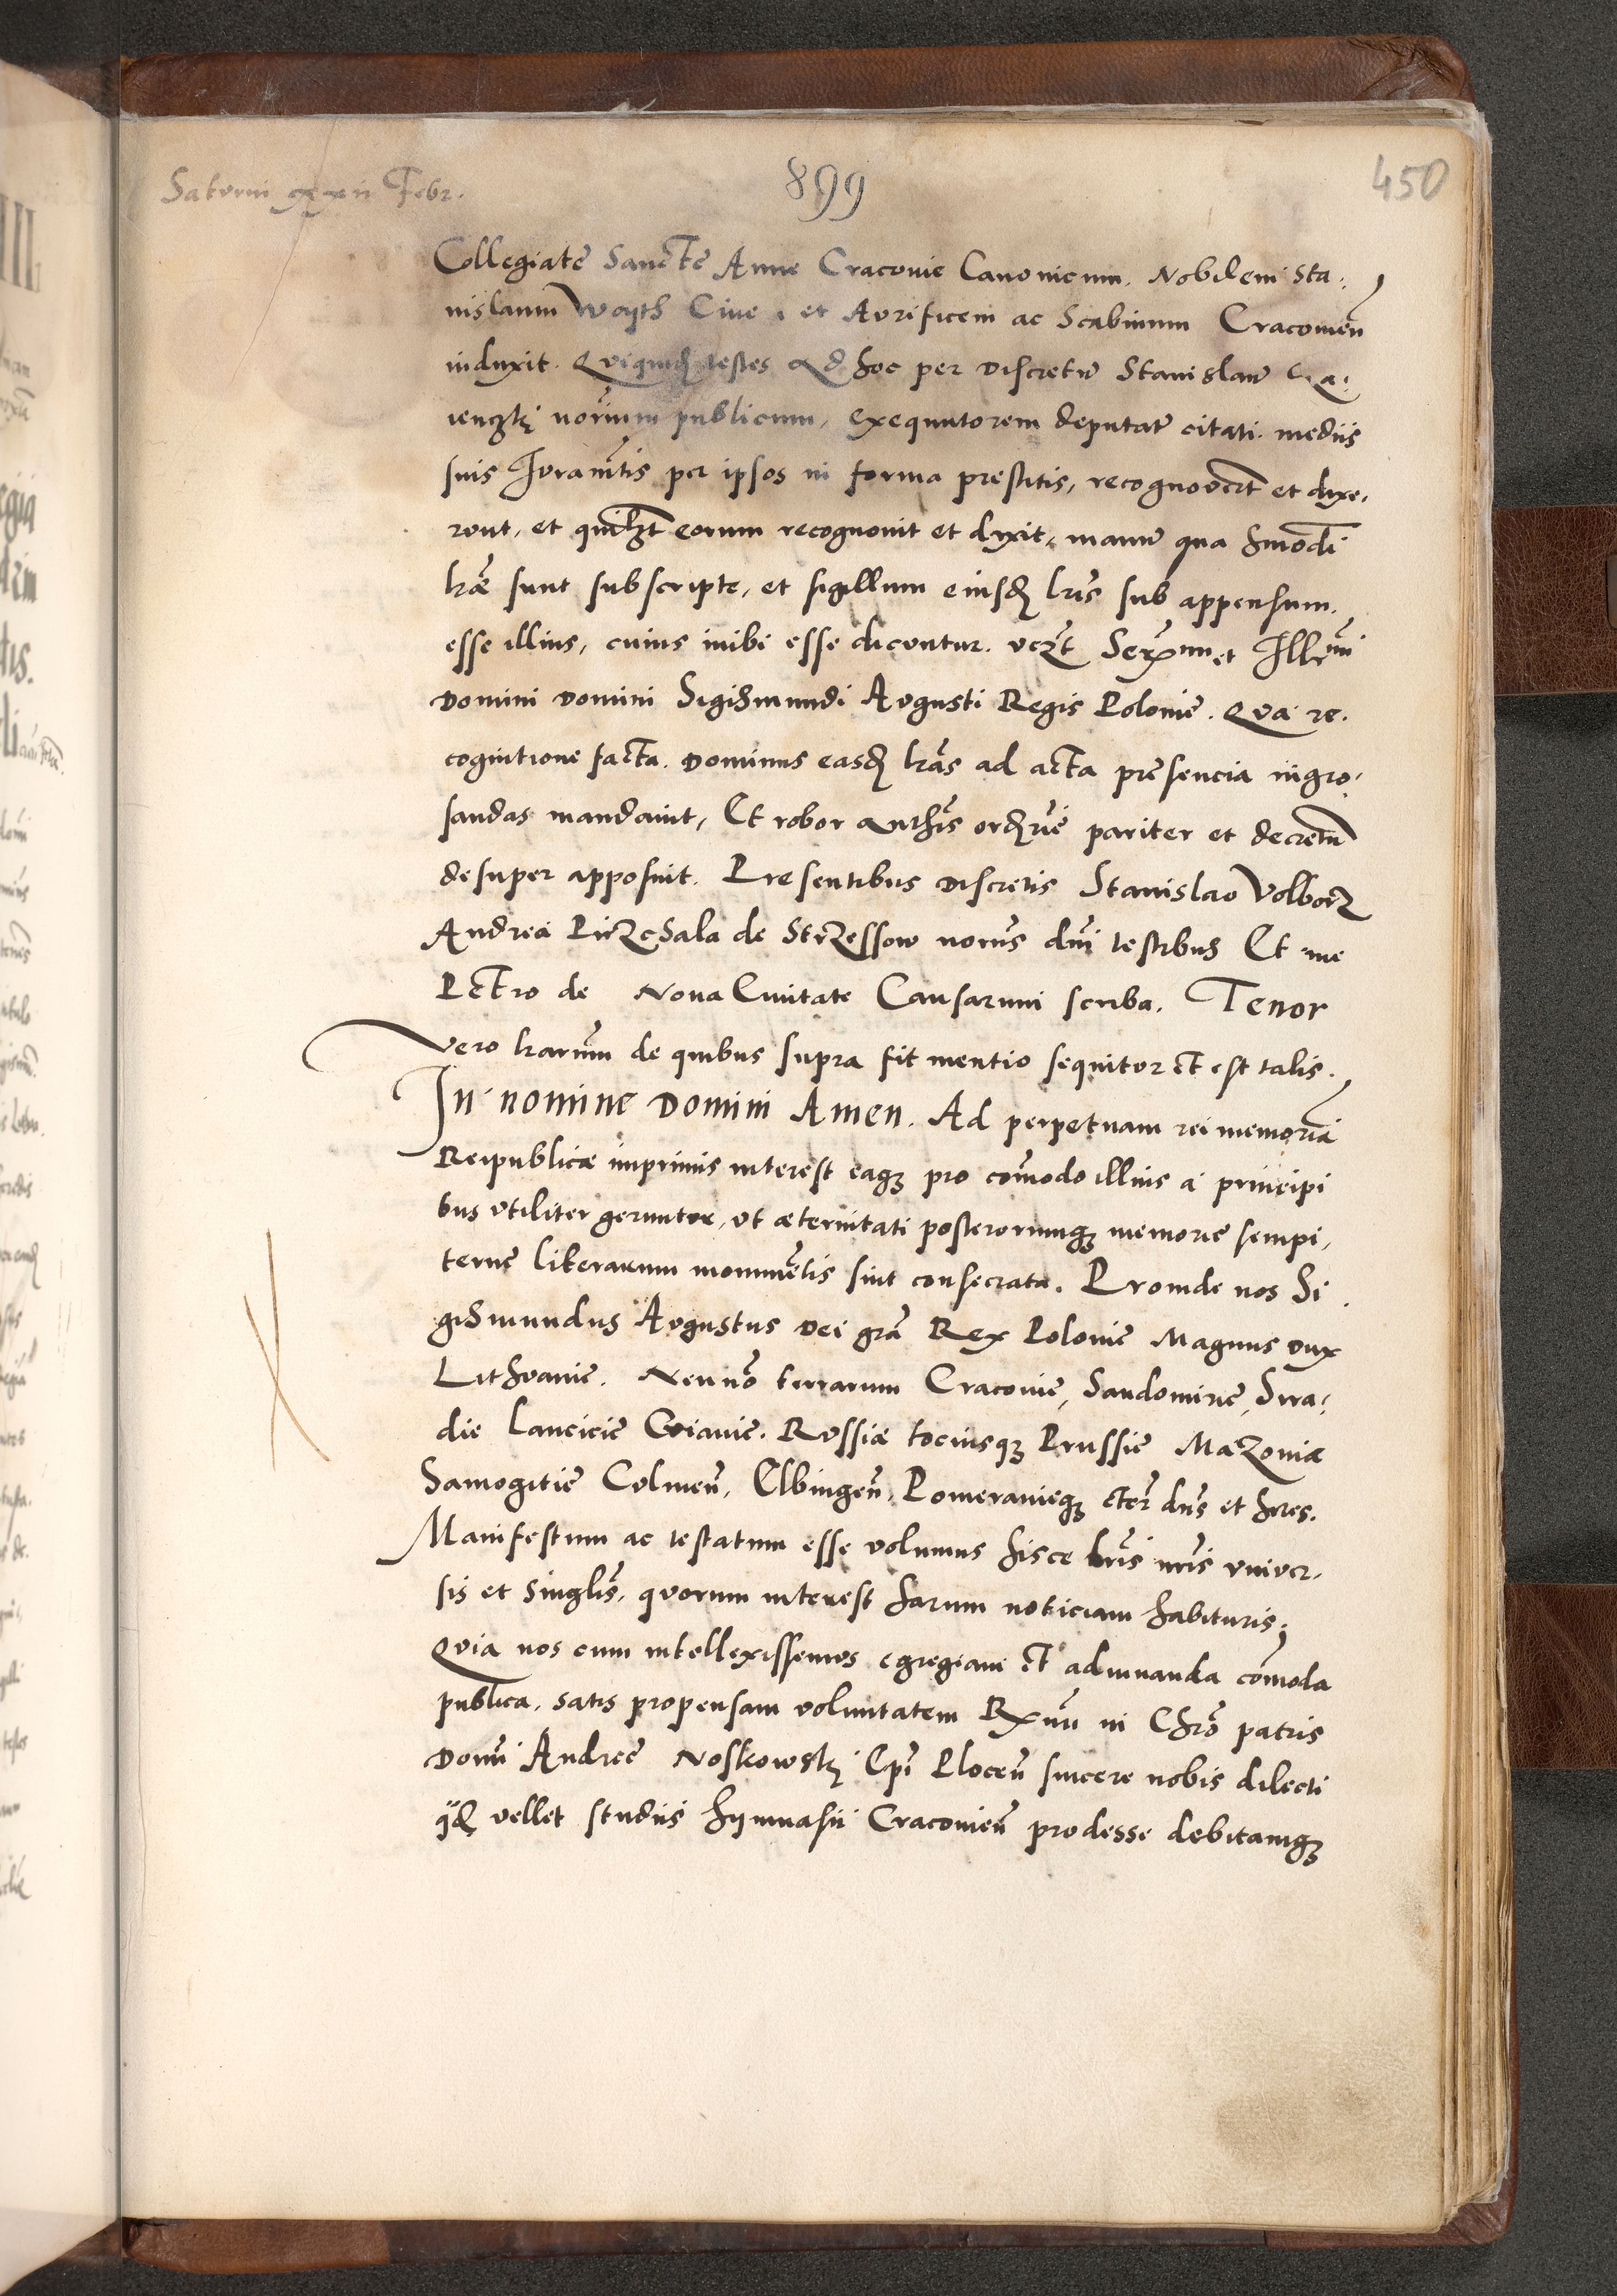 Saturni xxii Febr.
899
450
Collegiate Sancte Anne Cracovie Canonicum. Nobilem Sta-
nislaum Woyth Cive et Aurificem ac Scabinum Cracovien̄
induxit. Quiquid testes Ad hoc per Discretū Stanislaū
norium publicum, exequutorem deputatū citati. mediis
suis Iuramtis per ipsos in forma prestitis, recognovert et dixe-
runt, et quilzt eorum recognovit et dixit, manū qua hmodi
lrāe sunt subscripte, et sigillum eiusd lris sub appensum.
esse illius, cuius inibi esse dicuntur. vczt Serx̄mi et Illr̄mi
Domini Domini Sigismundi Augusti Regis Poloniē. Qua re-
cognitione facta. Dominus easd lrās ad acta presencia ingro-
sandas mandavit, Et robor authis ordrie pariter et decretū
desuper apposuit. Presentibus Discretis Stanislao Volborz
Andrea PirzeSala de Strzessow noriis dni testibus Et me
Petro de Nova Civitate Causarum scriba. Tenor
vero lrarum de quibus supra fit mentio sequitur et est talis.
In nomine Domini Amen. Ad perpetuam rei memoriā
Reipublicæ imprimis interest eaqз pro com̄odo illius a principi
bus utiliter geruntur, ut æternitati posterorumqз memoriē sempi-
ternē literarum monumētis sint consecrata. Proinde nos Si
gismundus Augustus Dei grā Rex Poloniē Magnus Dux
Lithuaniē. Necnō terrarum Cracoviē, Sandomiriē, Sira-
die Lanciciē Cuiaviē. Russiæ tociusqз Prussiē Mazoviæ
Samogitiē Culmen̄, Elbingen̄, Pomeraniēqз etcr̄ dn̄s et hres.
Manifestum ac testatum esse volumus hisce lris nr̄is univer-
sis et singlis, quorum interest harum noticiam habituris.
Quia nos cum intellexissemus egregiam et adiuvanda com̄oda
publica. satis propensam voluntatem Rx̄mi in Chrō patris
Domi Andreē Noskowski Epi Plocen̄ sincere nobis dilecti
qd vellet studiis hymnasii Cracovien̄ prodesse debitamqз